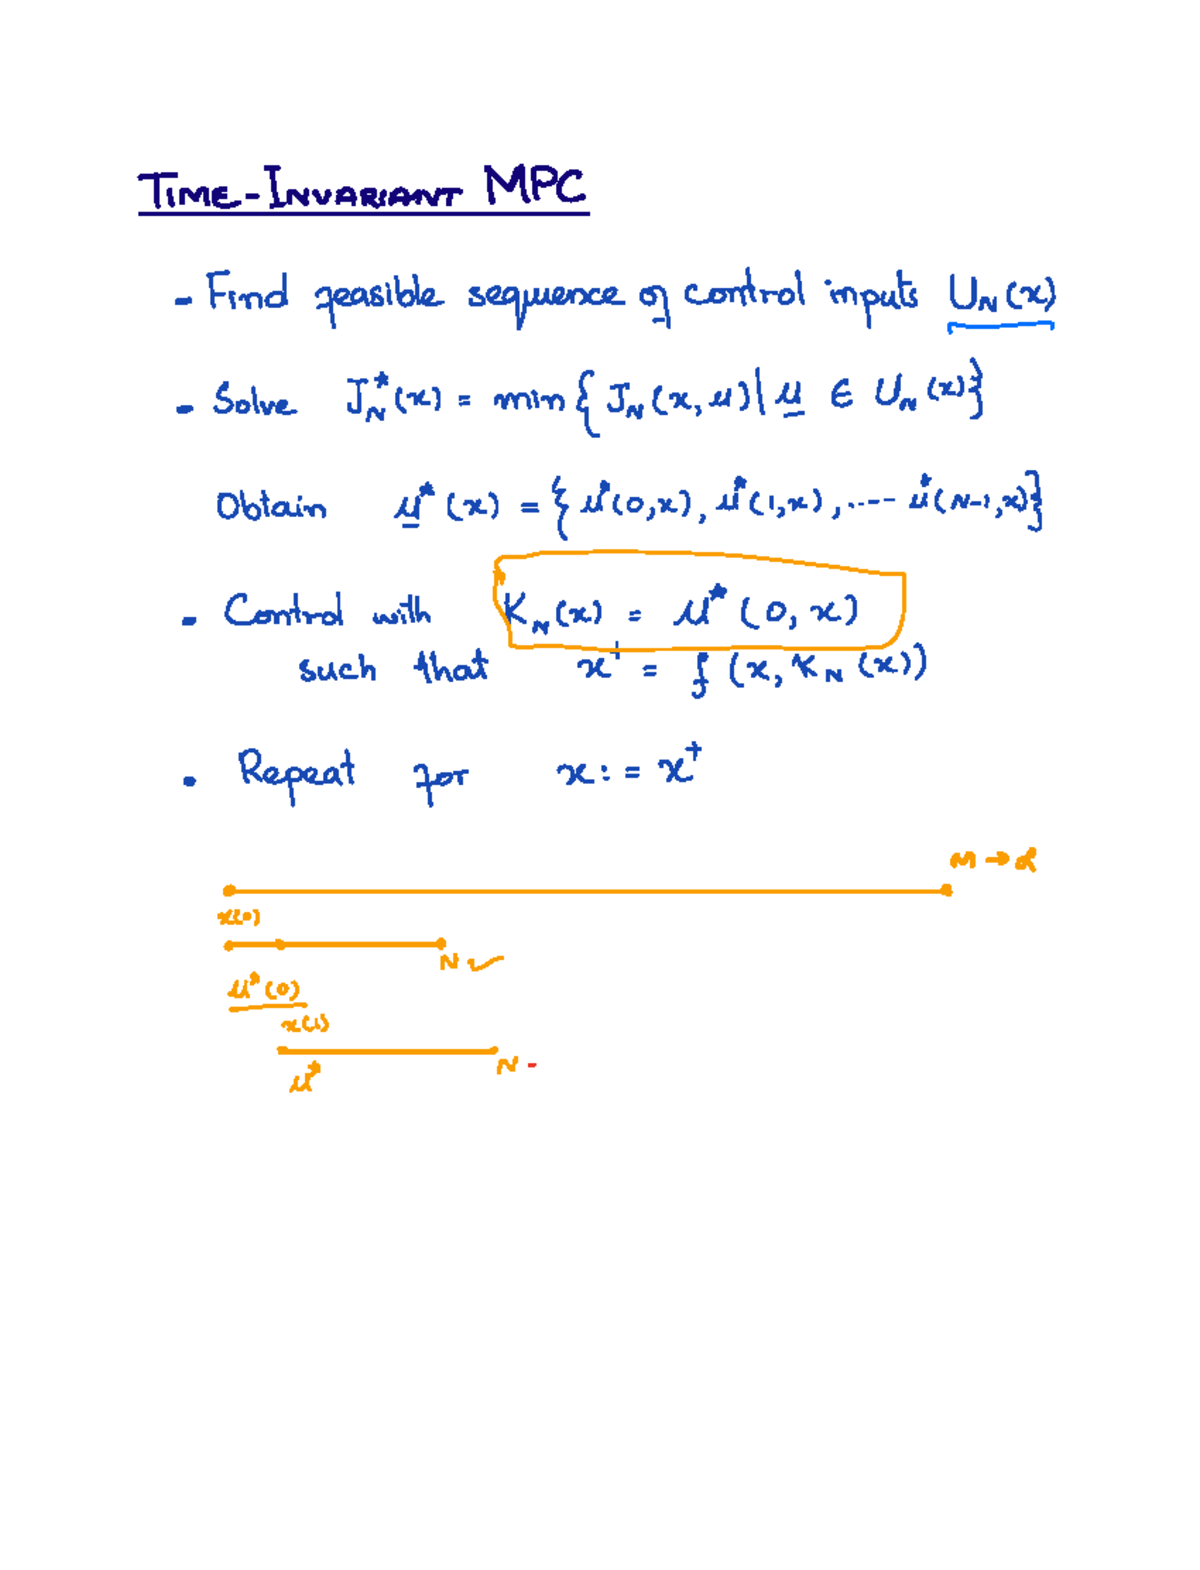 TIME-INVARIANT MPC
- Find feasible sequence of control inputs U_N(x)
- Solve J_N^*(x) = min{ J_N(x, u) | u ∈ U_N(x)}
Obtain u^*(x) = { u^*(0,x), u^*(1,x), ---- u^*(N-1,x)}
- Control with K_N(x) = u^*(0, x)
such that x^+ = f(x, K_N(x))
- Repeat for x := x^+
x(0)
N
u^*(0)
x(1)
N -
u^*